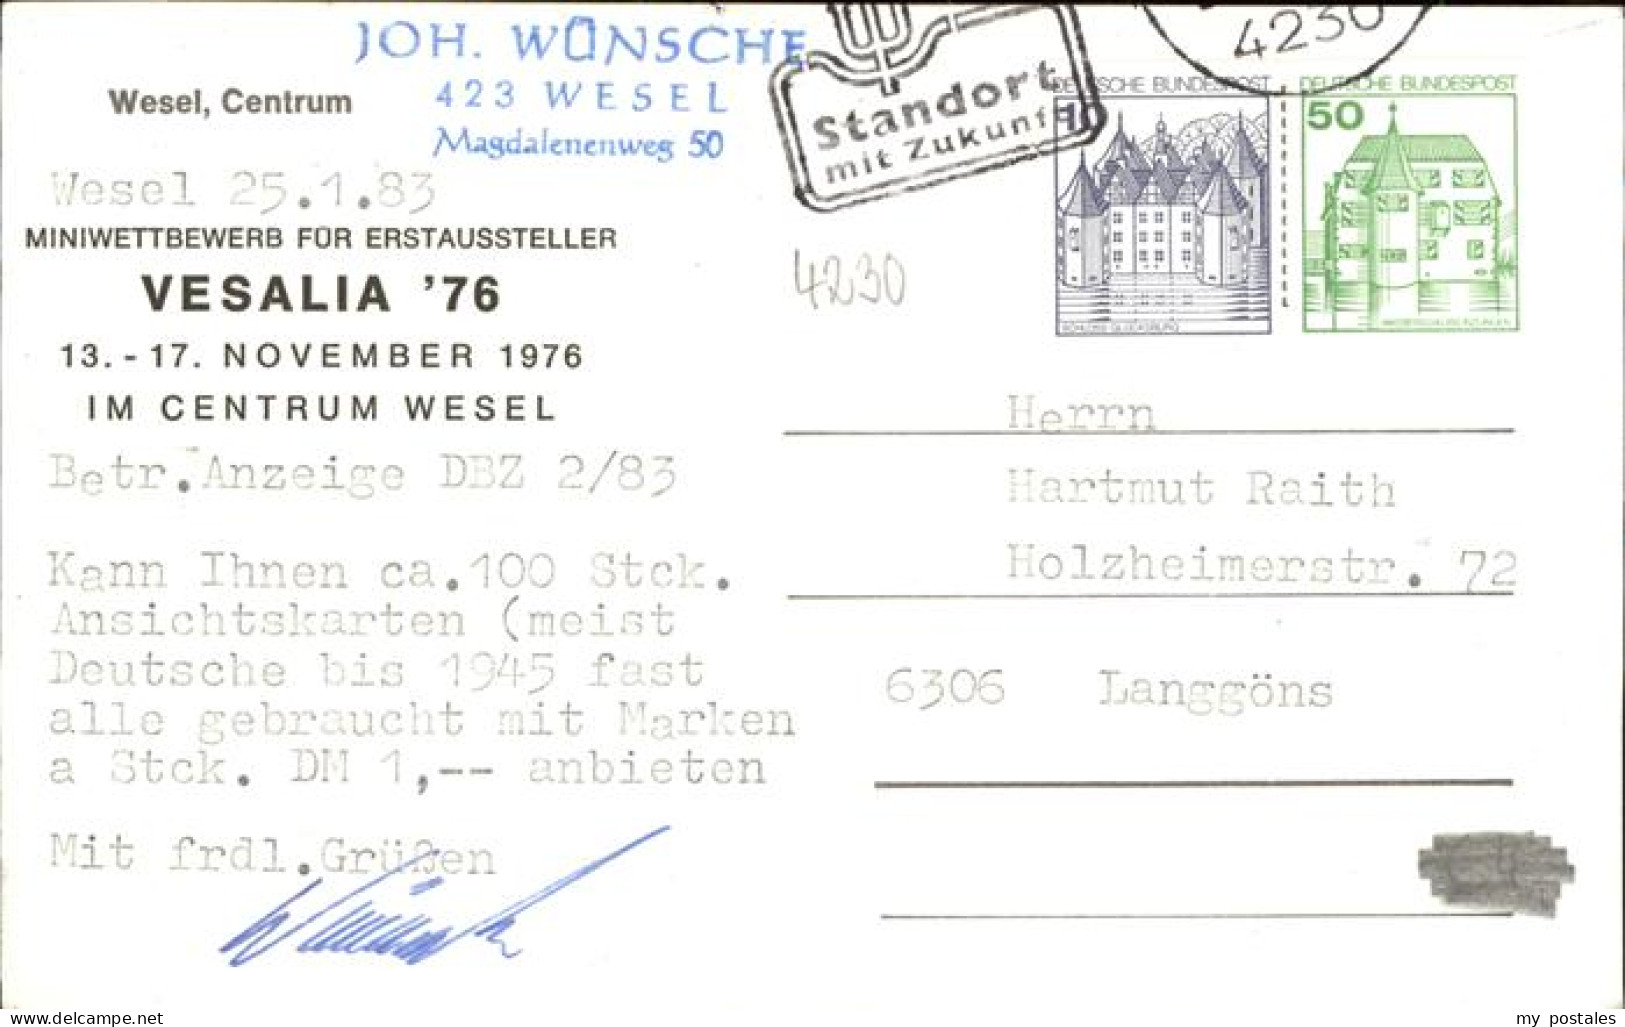 JOH. WÜNSCHE
423 WESEL
Magdalenenweg 50
Wesel, Centrum
Wesel 25.1.83
MINIWETTBEWERB FÜR ERSTAUSSTELLER
VESALIA '76
13. - 17. NOVEMBER 1976
IM CENTRUM WESEL
Betr.Anzeige DBZ 2/83
Kann Ihnen ca.100 Stck.
Ansichtskarten (meist
Deutsche bis 1945 fast
alle gebraucht mit Marken
a Stck. DM 1,-- anbieten
Mit frdl.Grüßen
Standort
mit Zukunft
4230
DEUTSCHE BUNDESPOST
10
SCHLOSS GLÜCKSBURG
DEUTSCHE BUNDESPOST
50
4230
Herrn
Hartmut Raith
Holzheimerstr. 72
6306 Langgöns
delcampe.net
my_postales